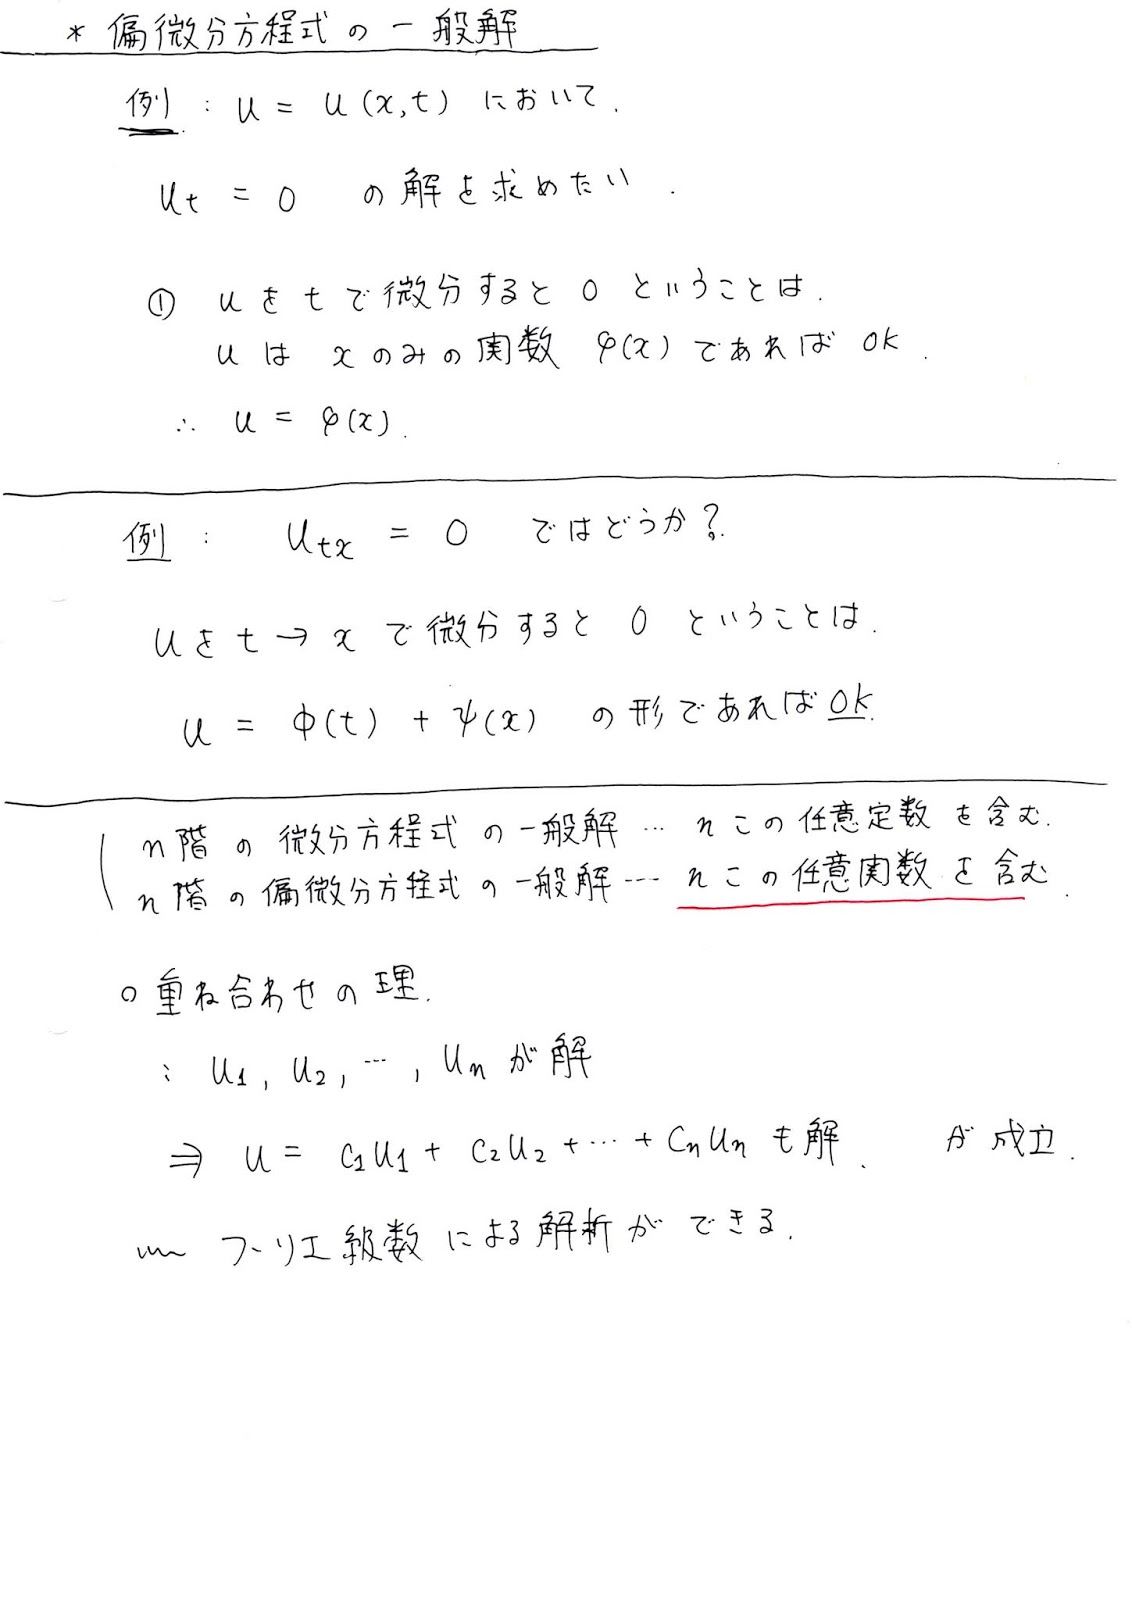 * 偏微分方程式の一般解
例 : u = u(x,t) において.
ut = 0 の解を求めたい.
① uをtで微分すると 0 ということは.
uは xのみの関数 φ(x) であれば OK.
∴ u = φ(x).
例 : utx = 0 ではどうか?
uをt→xで微分すると 0 ということは.
u = ϕ(t) + ψ(x) の形であればOK.
n階の微分方程式の一般解 … nこの任意定数を含む.
n階の偏微分方程式の一般解 … nこの任意関数を含む.
○重ね合わせの理.
: u1, u2, …, un が解
⇒ u = c1u1 + c2u2 + … + cnun も解. が成立.
〰 フーリエ級数による解析ができる.